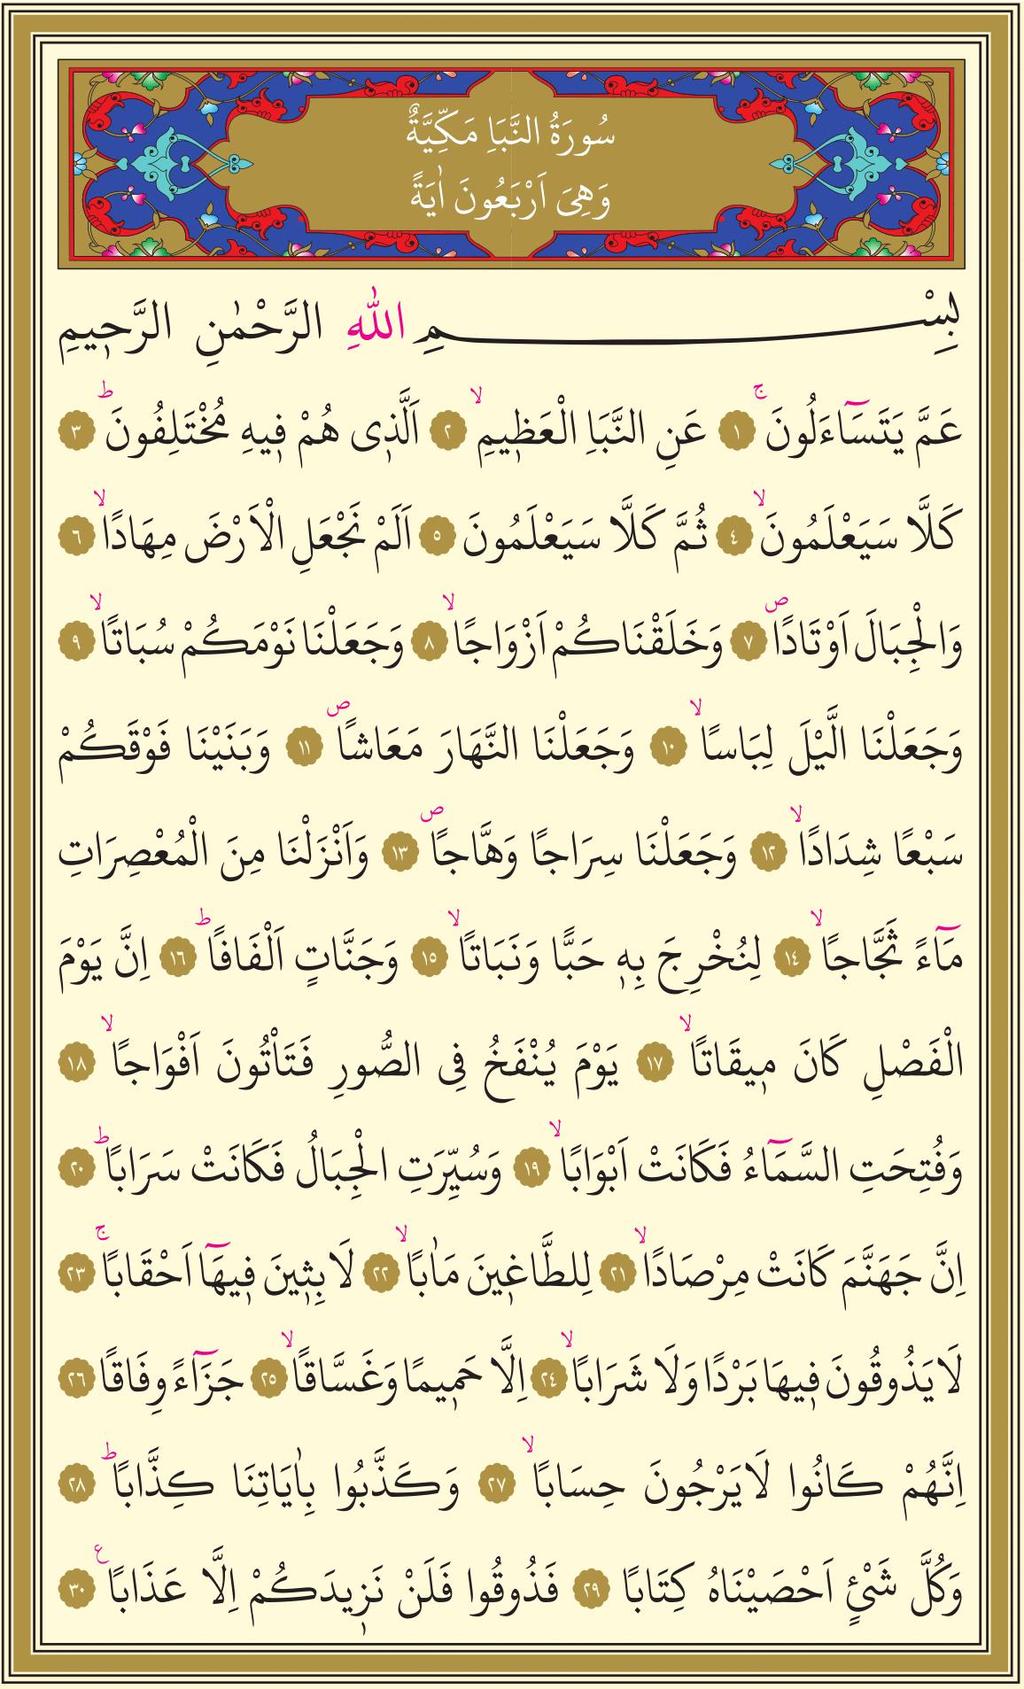 سُورَةُ النَّبَاِ مَكِّيَّةٌ
وَهِىَ اَرْبَعُونَ اٰيَةً
بِسْمِ اللّٰهِ الرَّحْمٰنِ الرَّحٖيمِ
عَمَّ يَتَسَٓاءَلُونَۚ ﴿١﴾ عَنِ النَّبَاِ الْعَظٖيمِۙ ﴿٢﴾ اَلَّذٖى هُمْ فٖيهِ مُخْتَلِفُونَؕ ﴿٣﴾
كَلَّا سَيَعْلَمُونَۙ ﴿٤﴾ ثُمَّ كَلَّا سَيَعْلَمُونَ ﴿٥﴾ اَلَمْ نَجْعَلِ الْاَرْضَ مِهَادًاۙ ﴿٦﴾
وَالْجِبَالَ اَوْتَادًاۖ ﴿٧﴾ وَخَلَقْنَاكُمْ اَزْوَاجًاۙ ﴿٨﴾ وَجَعَلْنَا نَوْمَكُمْ سُبَاتًاۙ ﴿٩﴾
وَجَعَلْنَا الَّيْلَ لِبَاسًاۙ ﴿١٠﴾ وَجَعَلْنَا النَّهَارَ مَعَاشًاۖ ﴿١١﴾ وَبَنَيْنَا فَوْقَكُمْ
سَبْعًا شِدَادًاۙ ﴿١٢﴾ وَجَعَلْنَا سِرَاجًا وَهَّاجًاۖ ﴿١٣﴾ وَاَنْزَلْنَا مِنَ الْمُعْصِرَاتِ
مَٓاءً ثَجَّاجًاۙ ﴿١٤﴾ لِنُخْرِجَ بِهٖ حَبًّا وَنَبَاتًاۙ ﴿١٥﴾ وَجَنَّاتٍ اَلْفَافًاؕ ﴿١٦﴾ اِنَّ يَوْمَ
الْفَصْلِ كَانَ مٖيقَاتًاۙ ﴿١٧﴾ يَوْمَ يُنْفَخُ فِى الصُّورِ فَتَاْتُونَ اَفْوَاجًاۙ ﴿١٨﴾
وَفُتِحَتِ السَّمَٓاءُ فَكَانَتْ اَبْوَابًاۙ ﴿١٩﴾ وَسُيِّرَتِ الْجِبَالُ فَكَانَتْ سَرَابًاؕ ﴿٢٠﴾
اِنَّ جَهَنَّمَ كَانَتْ مِرْصَادًاۙ ﴿٢١﴾ لِلطَّاغٖينَ مَاٰبًاۙ ﴿٢٢﴾ لَابِثٖينَ فٖيهَٓا اَحْقَابًاۚ ﴿٢٣﴾
لَا يَذُوقُونَ فٖيهَا بَرْدًا وَلَا شَرَابًاۙ ﴿٢٤﴾ اِلَّا حَمٖيمًا وَغَسَّاقًاۙ ﴿٢٥﴾ جَزَٓاءً وِفَاقًا ﴿٢٦﴾
اِنَّهُمْ كَانُوا لَا يَرْجُونَ حِسَابًاۙ ﴿٢٧﴾ وَكَذَّبُوا بِاٰيَاتِنَا كِذَّابًاؕ ﴿٢٨﴾
وَكُلَّ شَىْءٍ اَحْصَيْنَاهُ كِتَابًا ﴿٢٩﴾ فَذُوقُوا فَلَنْ نَزٖيدَكُمْ اِلَّا عَذَابًا ع ﴿٣٠﴾